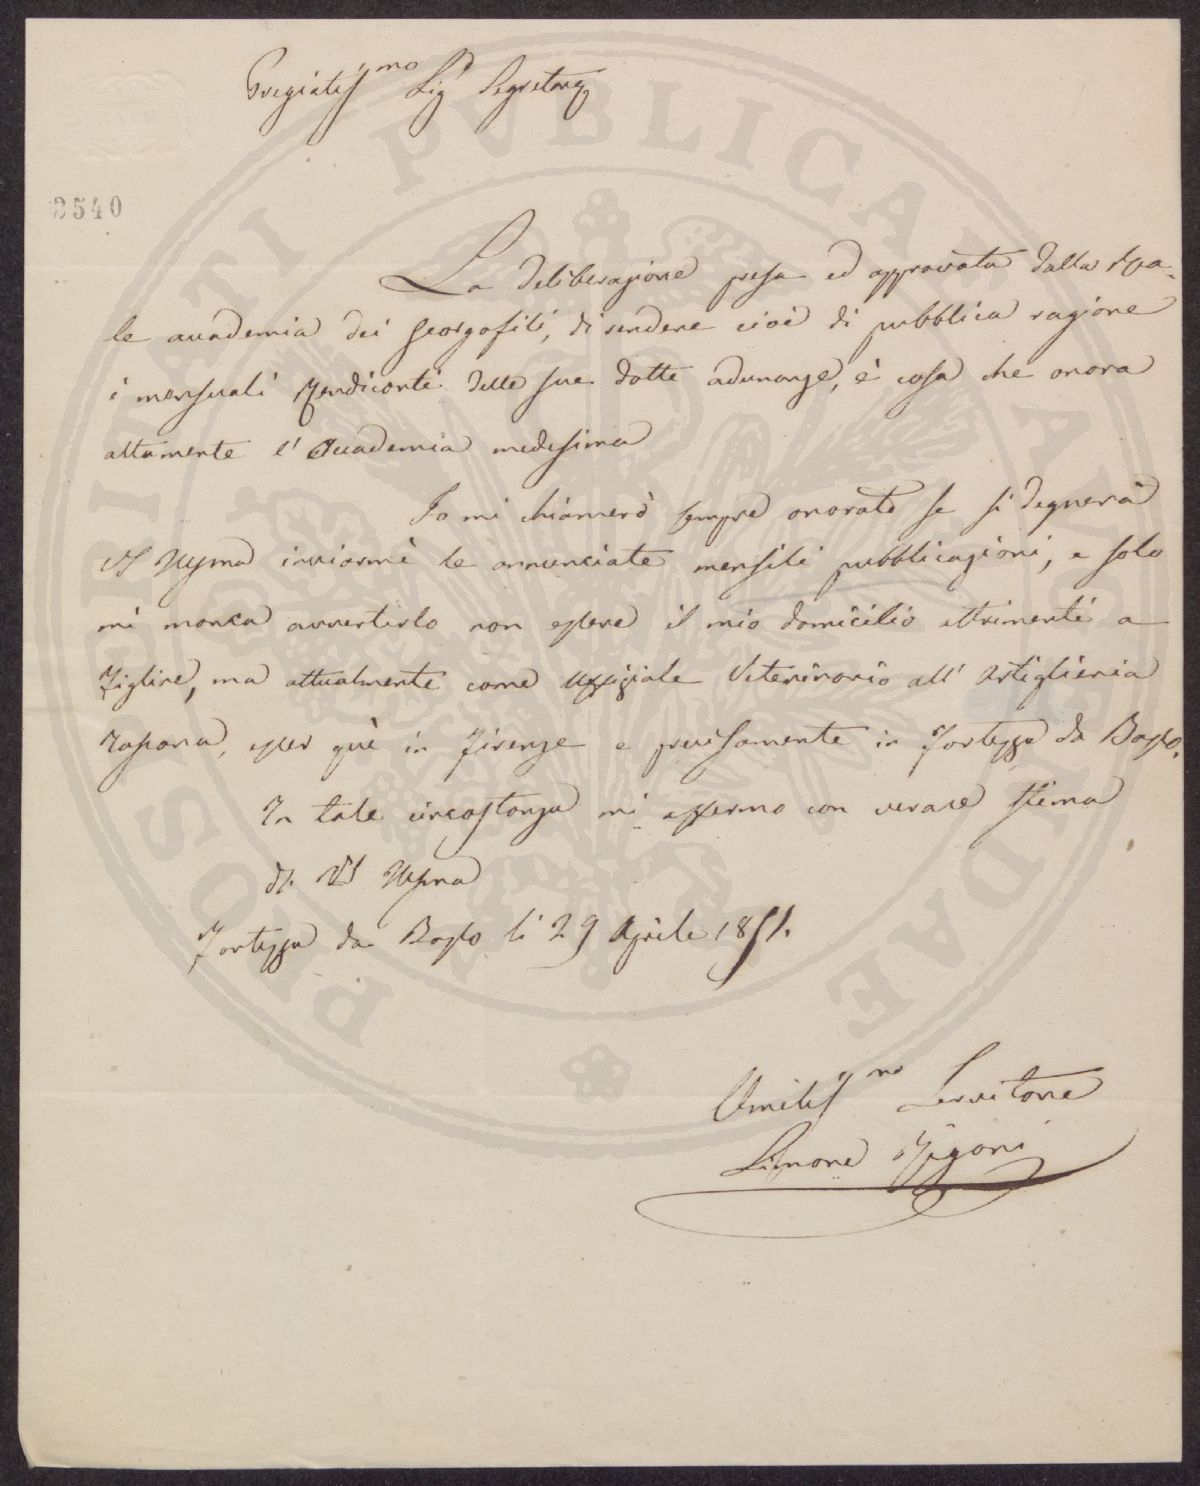 Pregiatiss.mo Sig.r Segretario
3540
La deliberazione presa ed approvata dalla Rea-
le accademia dei Georgofili, di rendere cioè di pubblica ragione
i mensuali Rendiconti delle sue dotte adunanze, è cosa che onora
altamente l'Accademia medesima
Io mi chiamerò sempre onorato se si degnerà
VS Illma inviarmi le annunciate mensili pubblicazioni, e solo
mi manca avvertirlo non essere il mio domicilio altrimenti a
Figline, ma attualmente come Uffiziale Veterinario all'Artiglieria
Toscana, esser quì in Firenze e precisamente in Fortezza da Basso.
In tale circostanza mi affermo con verace stima
di VS Illma
Fortezza da Basso li 29 Aprile 1851.
Umiliss.mo Servitore
Simone
PISCOPIENSIS